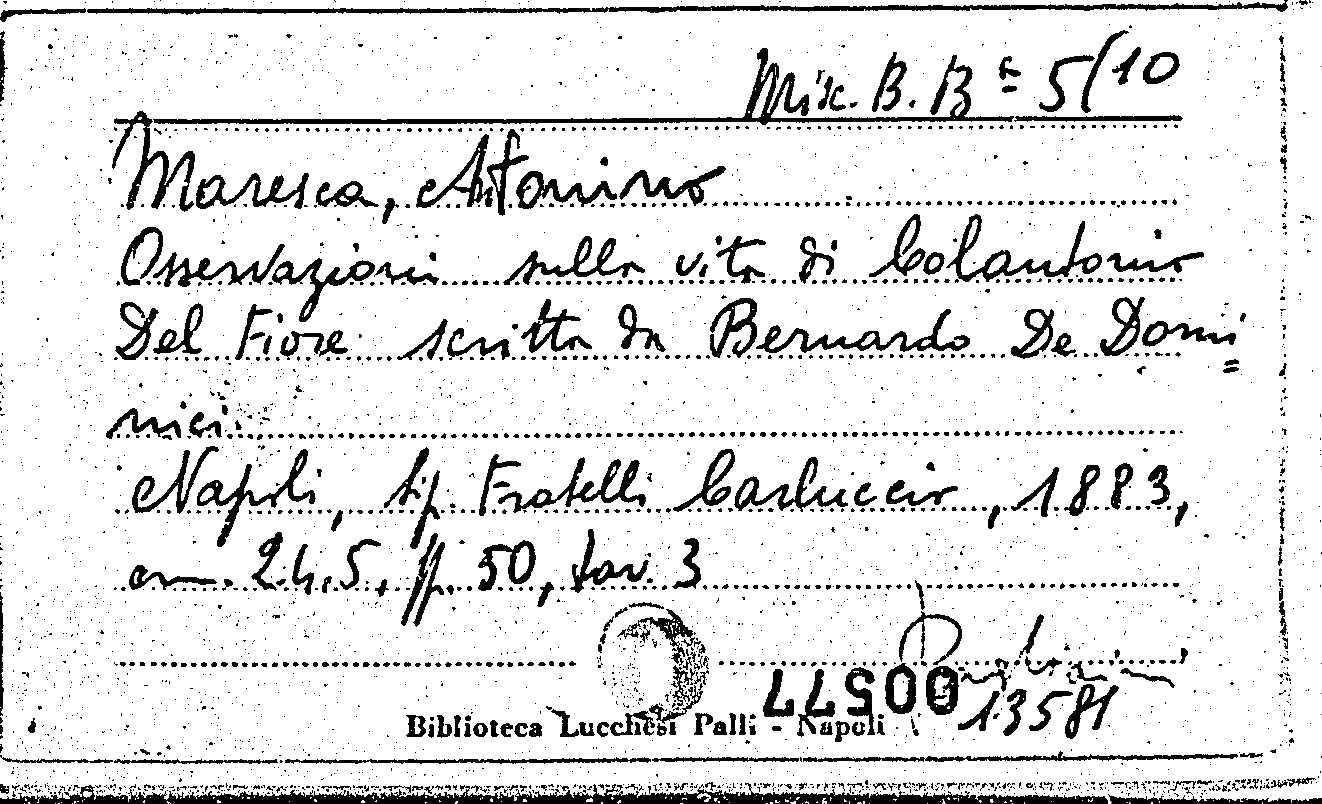 Misc. B. Bª 5(10
Maresca, Antonino
Osservazioni sulla vita di Colantonio
Del Fiore scritta da Bernardo De Domi=
nici.
Napoli, tip. Fratelli Carluccio, 1883,
cm. 24.5, pp. 50, tav. 3
00577
13581
Biblioteca Lucchesi Palli - Napoli